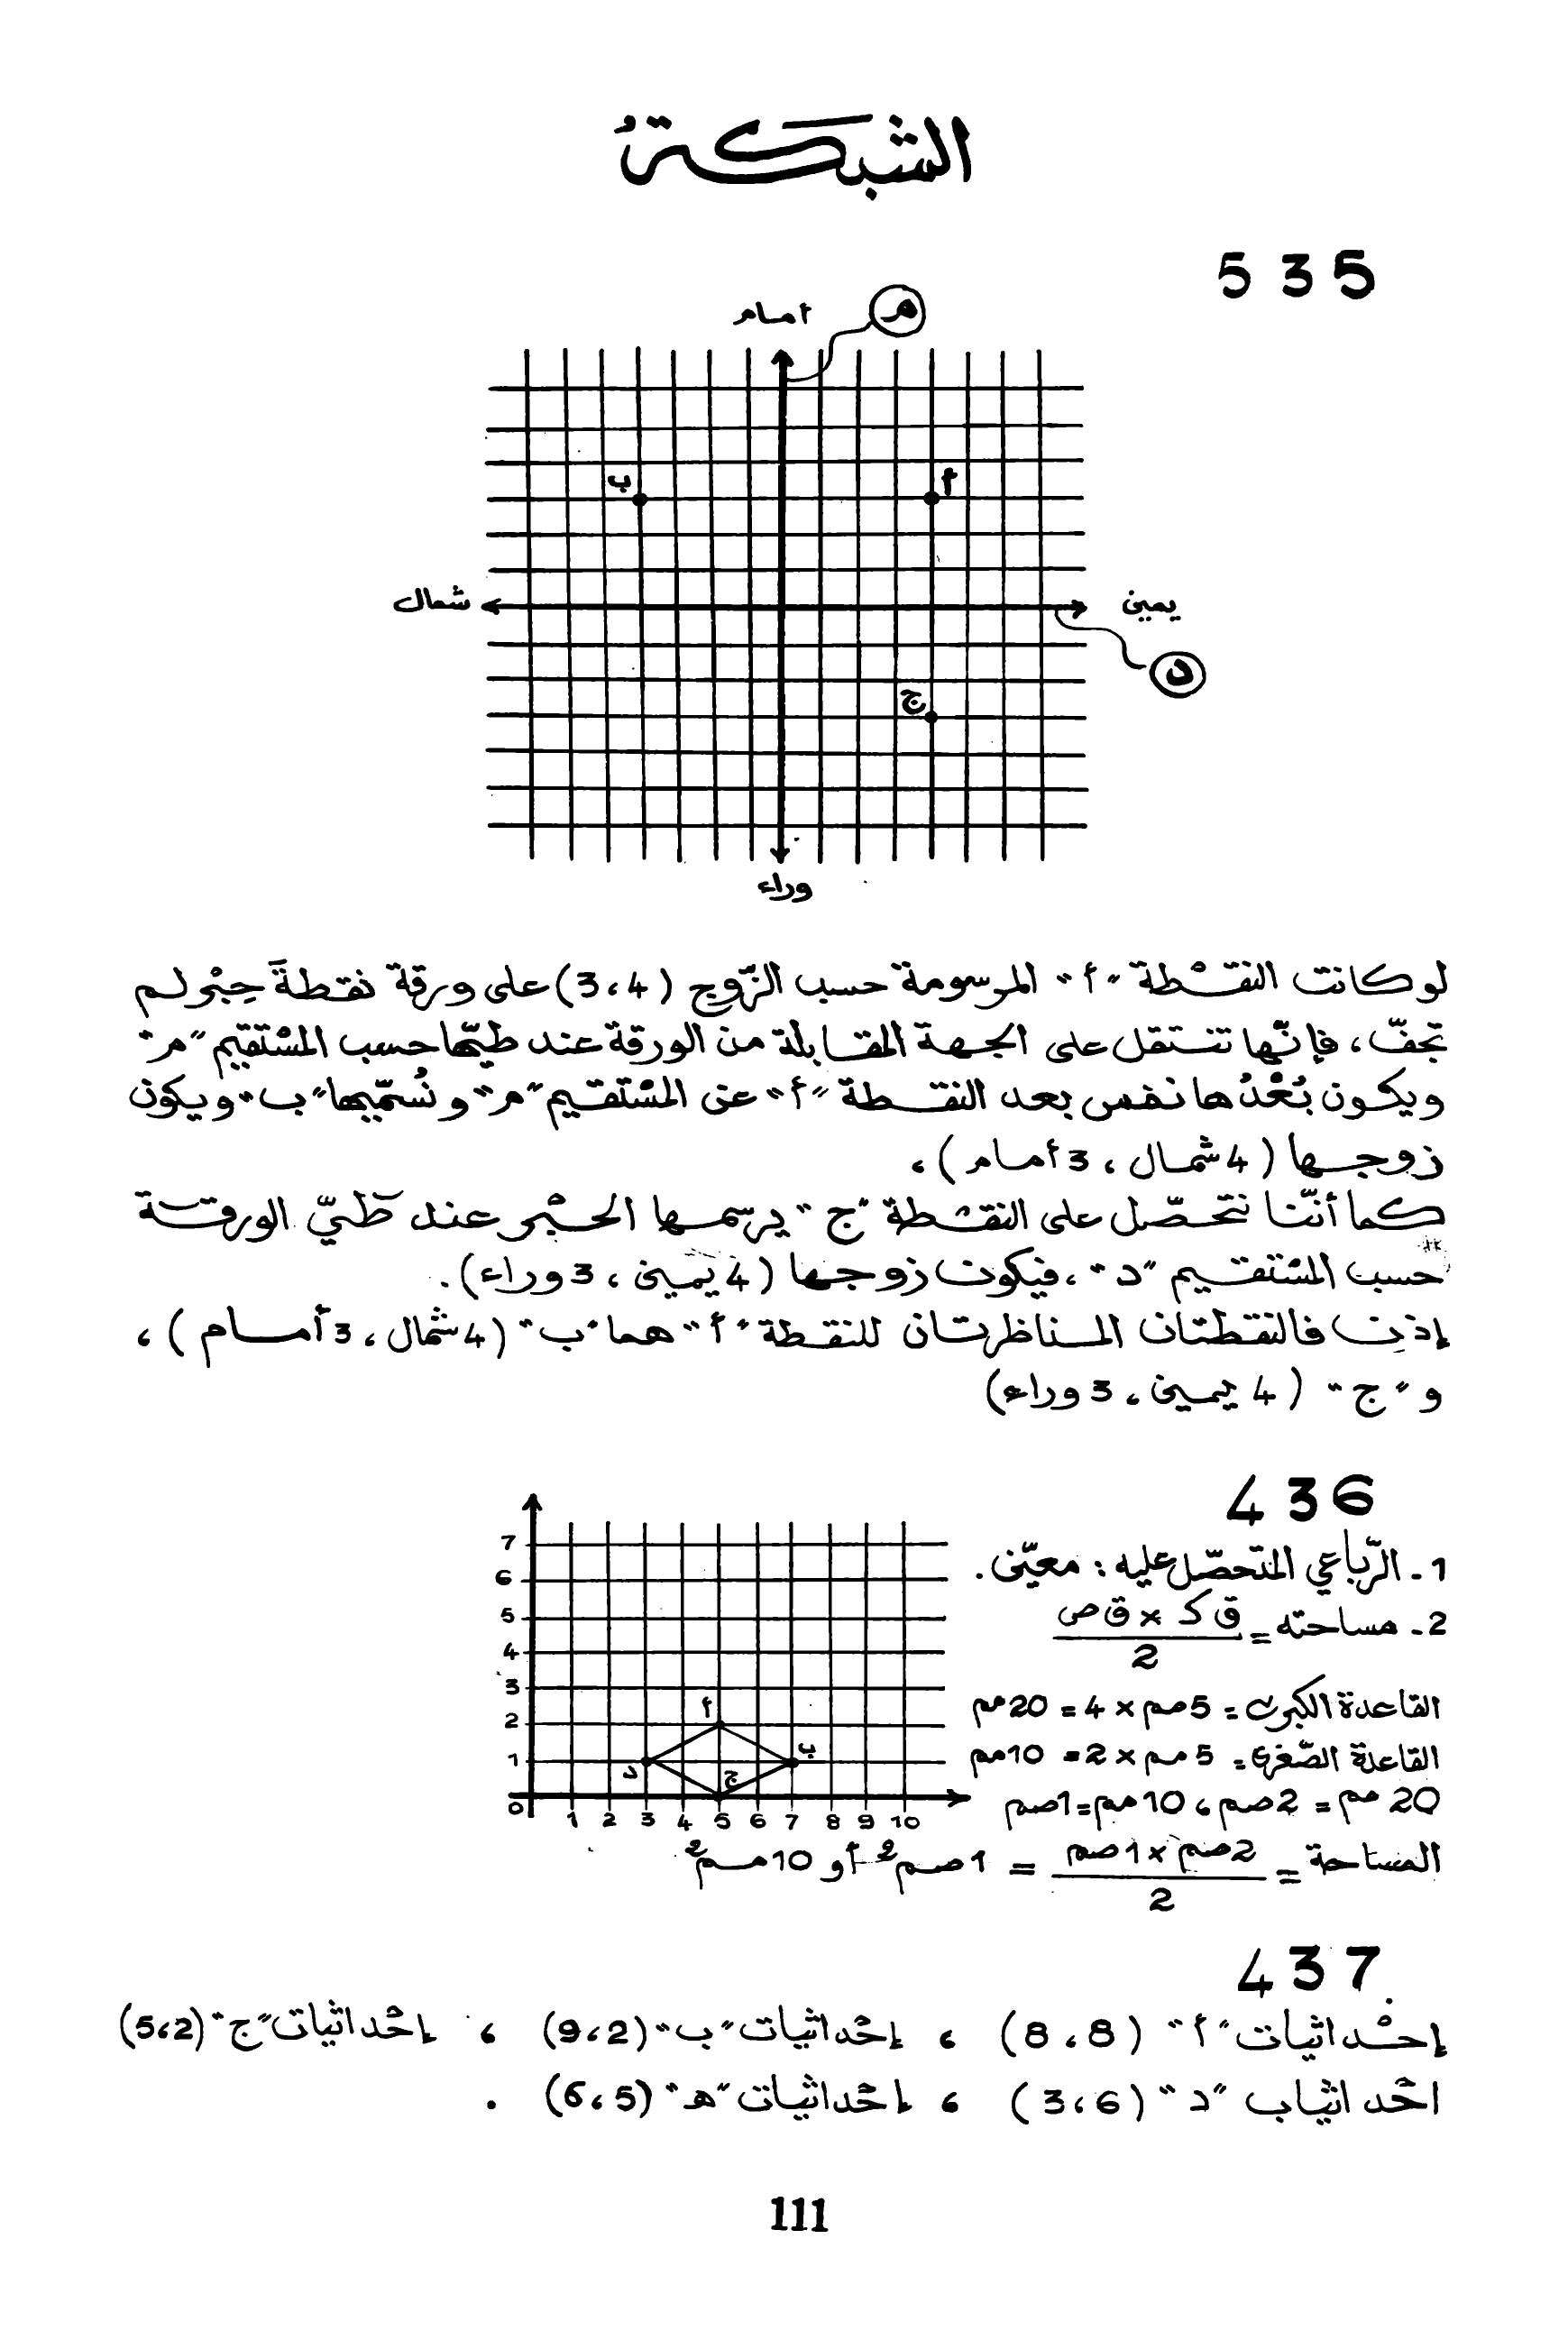 الشبكة
535
أمام
م
ب
أ
شمال
يمين
د
ج
وراء
لو كانت النقْطة "أ" المرسومة حسب الزّوج (3،4) على ورقة نقطةَ حِبْر لم
تجفّ، فإنّها تنتقل على الجهة المقابلة من الورقة عند طيّها حسب المسْتقيم "م"
ويكون بُعْدُها نفس بعد النقطة "أ" عن المسْتقيم "م" ونُسمّيها "ب" ويكون
زوجها (4 شمال ، 3 أمام) ،
كما أنّنا نتحصّل على النقطة "ج" يرسمها الحبْر عند طَيّ الورقة
حسب المسْتقيم "د" ، فيكون زوجها (4 يمين ، 3 وراء) .
إذن فالنقطتان المناظرتان للنقطة "أ" هما "ب" (4 شمال ، 3 أمام) ،
و "ج" (4 يمين ، 3 وراء)
436
1 - الرّباعي المتحصّل عليه : معيّن .
2 - مساحته = ق ك × ق ص / 2
القاعدة الكبرى = 5 مم × 4 = 20 مم
القاعدة الصّغرى = 5 مم × 2 = 10 مم
20 مم = 2 صم ، 10 مم = 1 صم
المساحة = 2 صم × 1 صم / 2 = 1 صم² أو 10 مم²
7
6
5
4
3
2
1
0
أ
ب
ج
د
1 2 3 4 5 6 7 8 9 10
437
إحْداثيات "أ" (8 ، 8) ، إحْداثيات "ب" (9،2) ، إحْداثيات "ج" (5،2)
احْداثياب "د" (3،6) ، إحْداثيات "هـ" (6،5) .
111